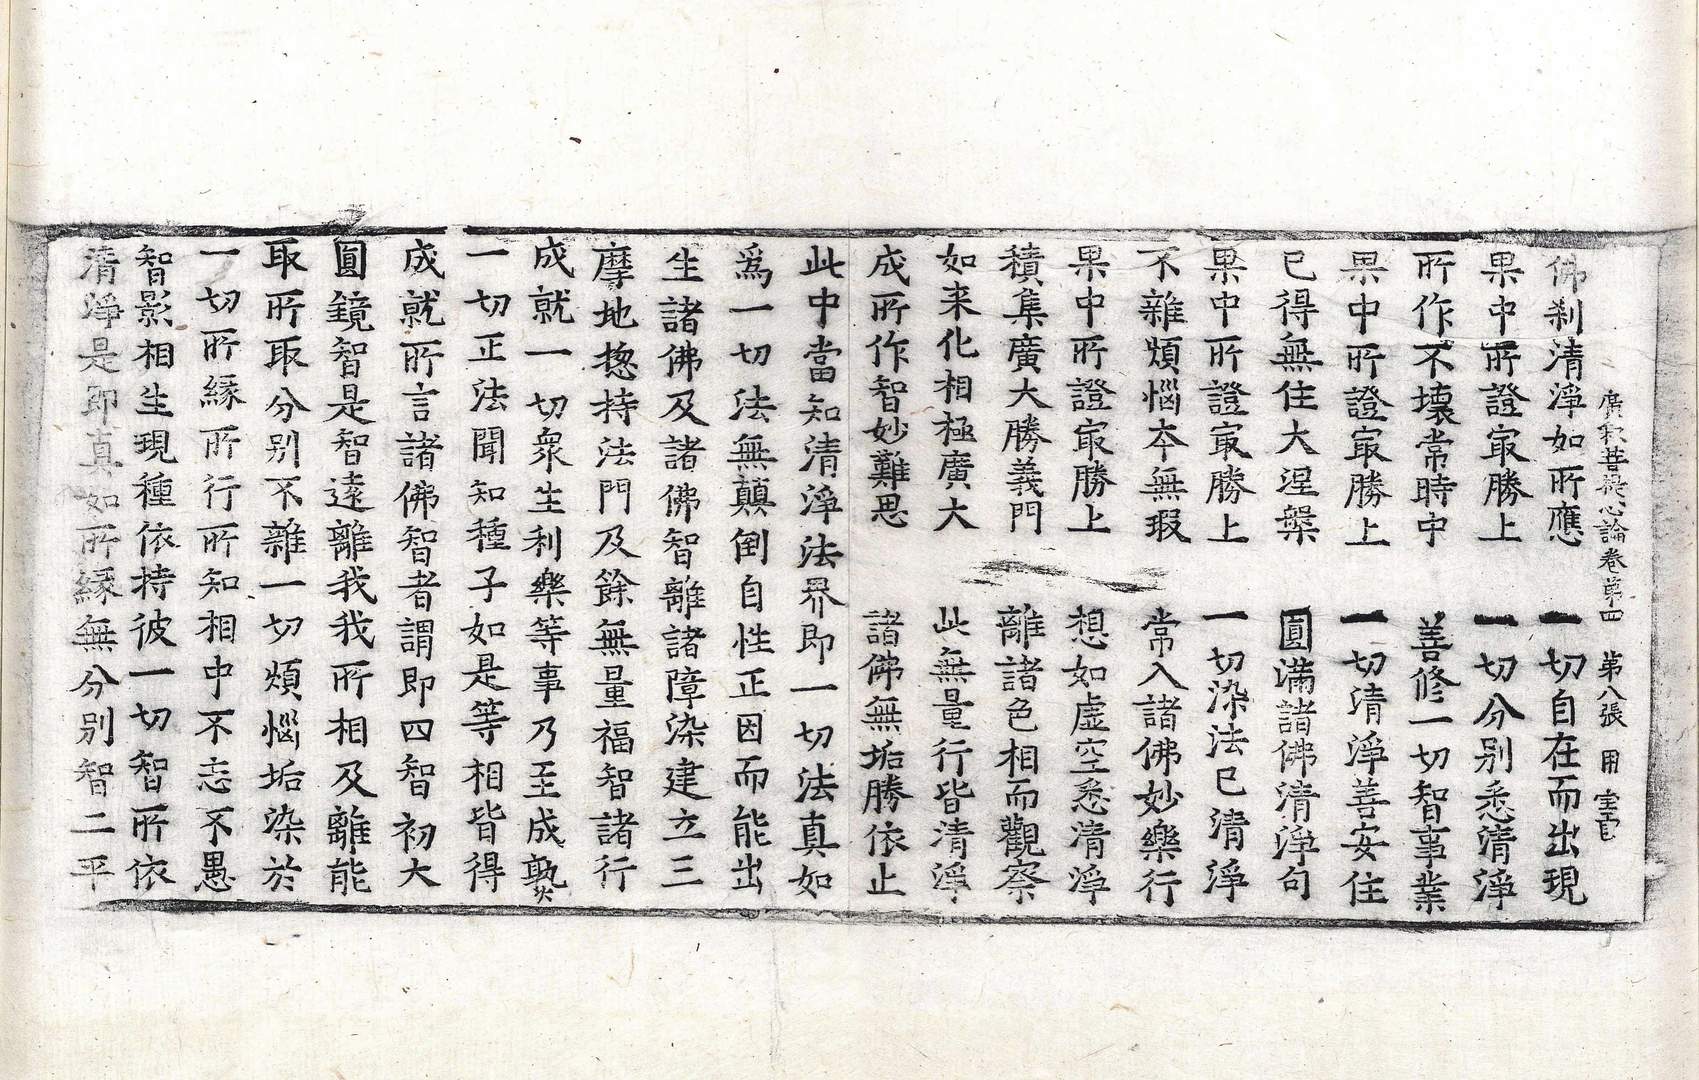 廣釈菩提心論卷第四 第八張 用
佛刹清淨如所應 一切自在而出現
果中所證㝡勝上 一切分别悉清淨
所作不壞常時中 善修一切智事業
果中所證㝡勝上 一切清淨善安住
已得無住大涅槃 圓滿諸佛清淨句
果中所證㝡勝上 一切染法已清淨
不雜煩惱夲無瑕 常入諸佛妙樂行
果中所證㝡勝上 想如虚空悉清淨
積集廣大勝義門 離諸色相而觀察
如来化相極廣大 此無量行皆清淨
成所作智妙難思 諸佛無垢勝依止
此中當知清淨法界即一切法真如
爲一切法無顛倒自性正因而能出
生諸佛及諸佛智離諸障染建立三
摩地揔持法門及餘無量福智諸行
成就一切衆生利樂等事乃至成熟
一切正法聞知種子如是等相皆得
成就所言諸佛智者謂即四智初大
圓鏡智是智遠離我我所相及離能
取所取分别不雜一切煩惱垢染於
一切所緣所行所知相中不忘不愚
智影相生現種依持彼一切智所依
清淨是即真如所緣無分别智二平